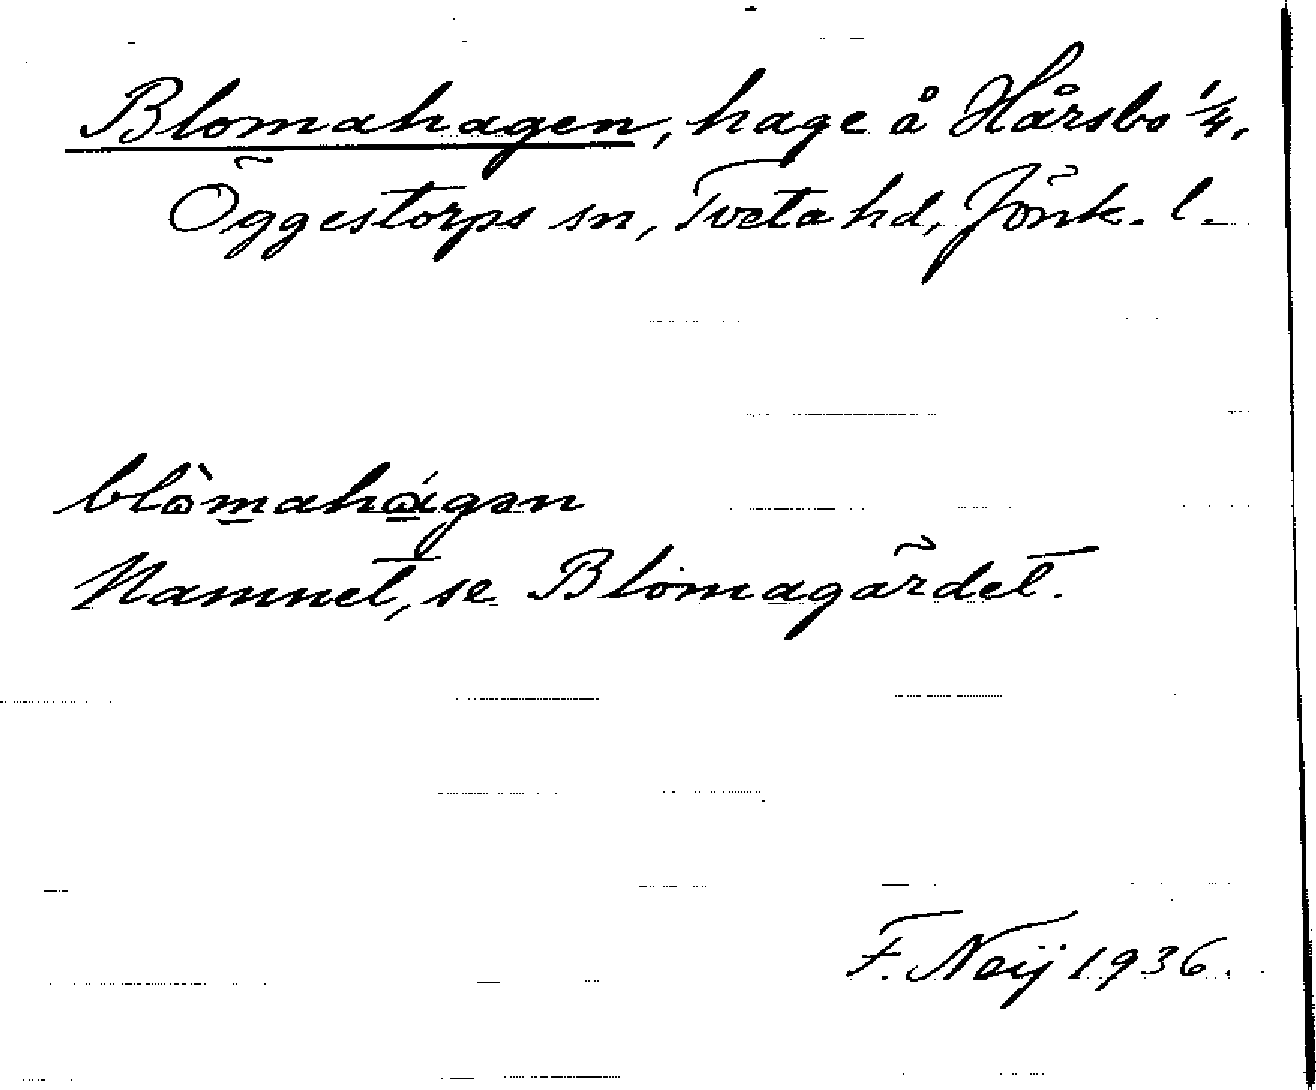 Blomahagen, hage å Hårsbo 1/4,
Öggestorps sn, Tveta hd, Jönk. l.
blòmahágən
Namnet, se Blomagärdet.
F. Neij 1936.